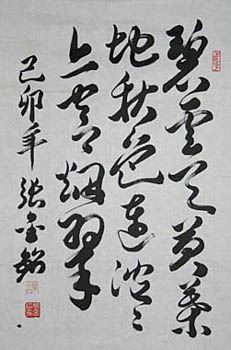 碧雲天黄葉
地秋色連波〻
上寒烟翠
己卯年張金銘